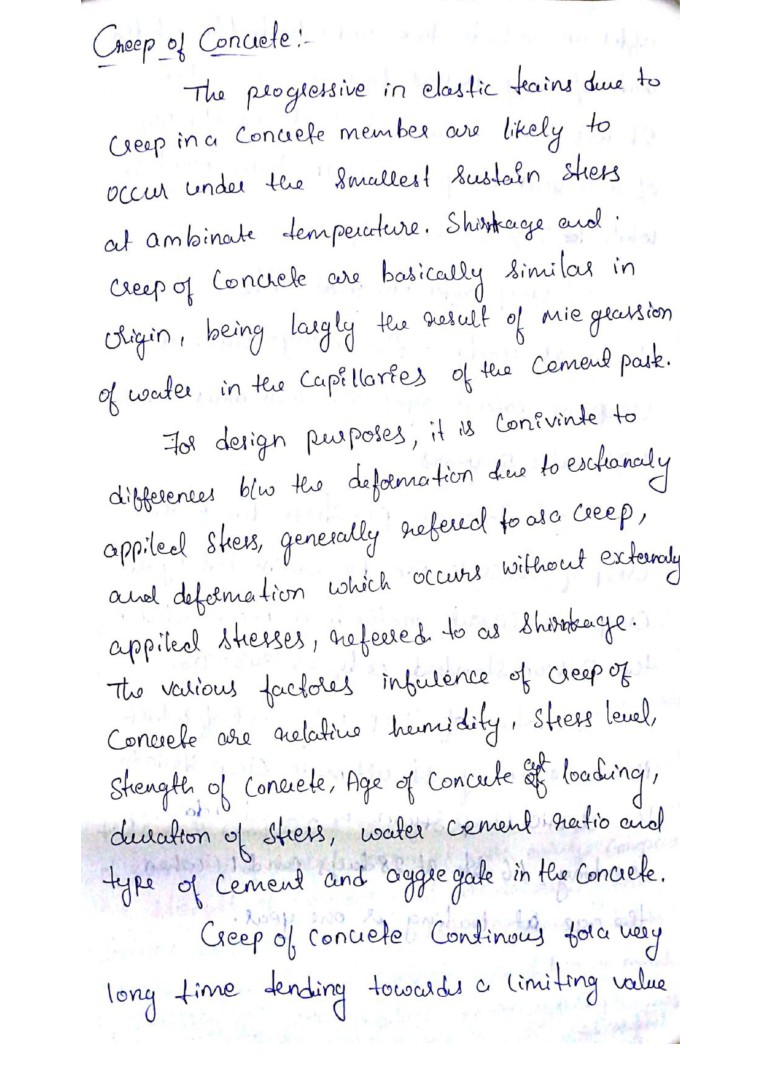 Creep of Concrete:-
The progressive in elastic trains due to
Creep in a Concrete member are likely to
occur under the Smallest Sustain stress
at ambinate temperature. Shirkage and
Creep of Concrete are basically Similar in
Origin, being largly the result of mie grassion
of water in the Capillaries of the Cement past.
For design purposes, it is Conivinte to
differences b/w the deformation due to exteranaly
appiled Stress, generally refered to as a Creep,
and deformation which occurs without externaly
appiled stresses, refeered to as Shirnkage.
The various factores infulence of Creep of
Concrete are relative humidity, Stress level,
Strength of Concrete, Age of Concrete at loading,
duration of Stress, water cement ratio and
type of Cement and aggregate in the Concrete.
Creep of concrete Continous for a very
long time tending towards a limiting value